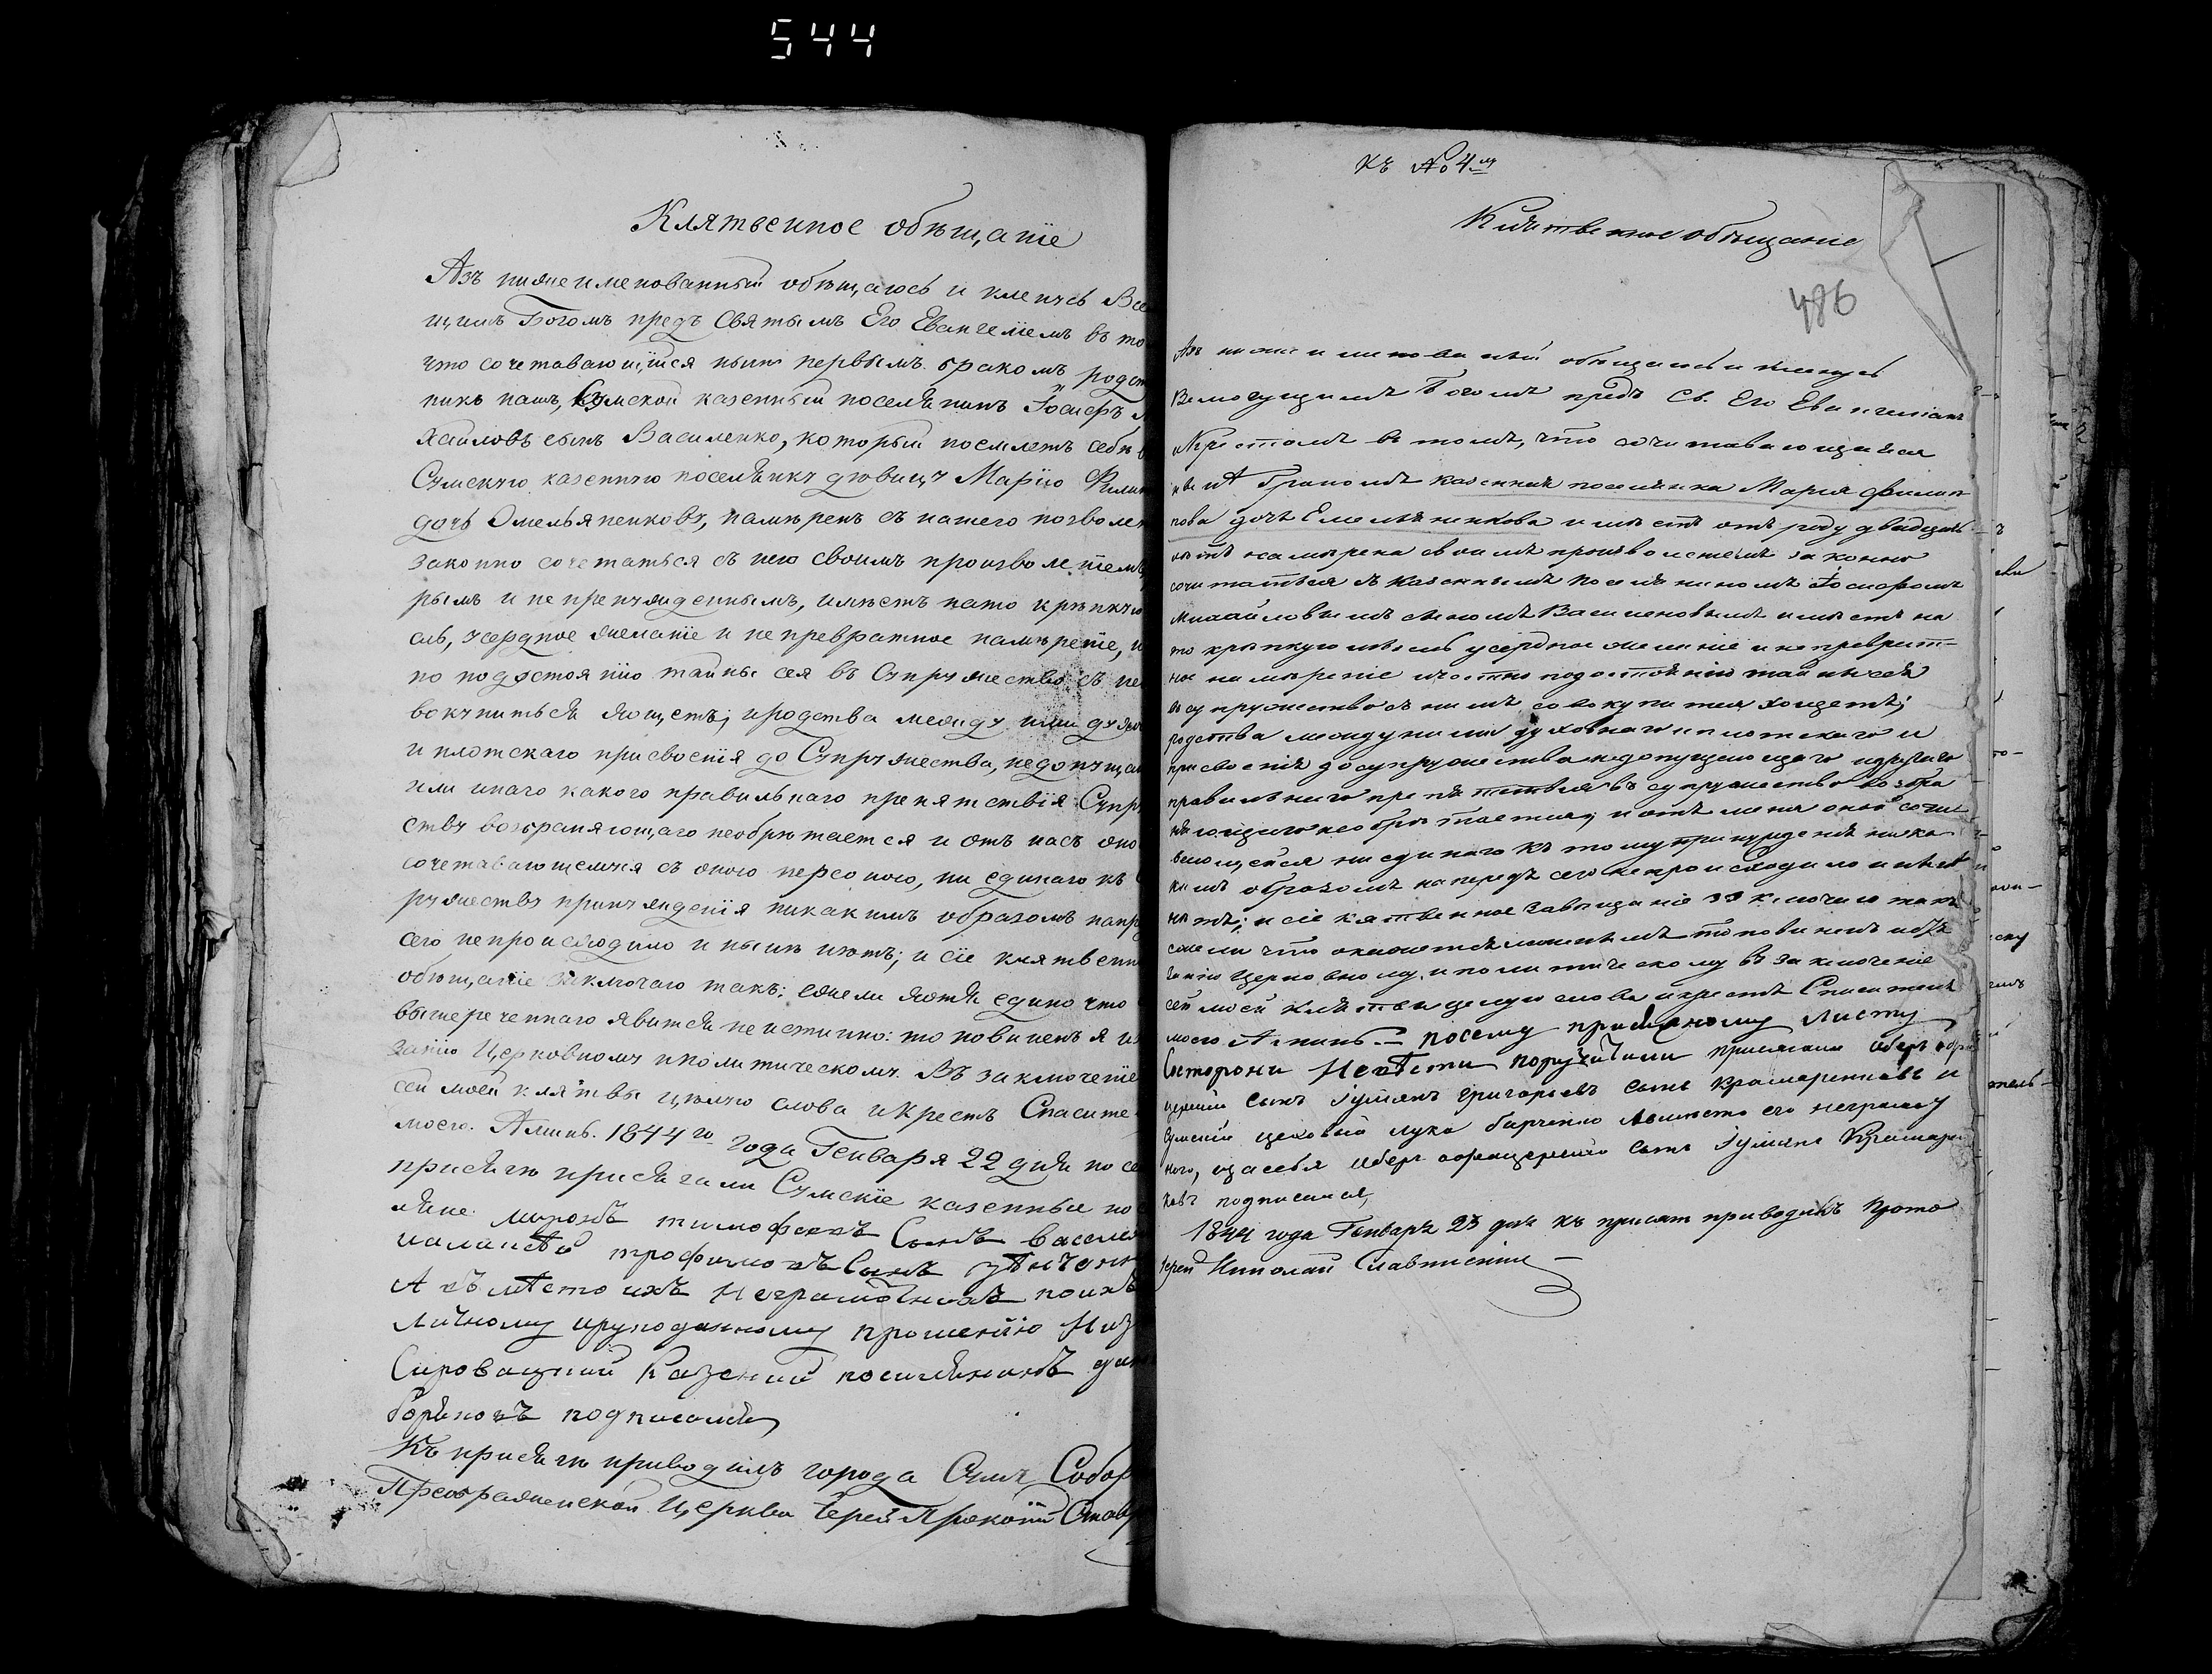 544
Клятвенное обѣщаніе
Азъ нижеименованный обѣщаюсь и кленусь Все
щимъ Богомъ предъ Святымъ Его Евангеліемъ въ то
что сочетавающійся нынѣ первымъ бракомъ родст
никъ нашъ, Сумской казенный поселянинъ Іосифъ М
хайловъ сынъ Василенко, который поемлетъ себѣ в
Сумскую казенную поселянку дѣвицу Марію Филип
дочь Омельяненкову, намѣренъ съ нашего позволен
законно сочетаться съ нею своимъ произволеніемъ,
рымъ и непринужденнымъ, имѣетъ нато крѣпкую
сль, усердное желаніе и непревратное намѣреніе, и
но подостоянію тайны сея въ Супружество съ не
вокупиться хощетъ; и родства между ими духов
и плотскаго присвоенія до Супружества, недопуща
или инаго какого правильнаго препятствія Супр
ству возбраняющаго необрѣтается и отъ насъ оно
сочетавающемуся съ оною персоною, ни единаго къ
ружеству принужденія никакимъ образомъ напр
сего непроисходило и нынѣ нѣтъ; и сіе клятвенн
обѣщаніе заключаю такъ: ежели хотя едино что
вышереченнаго явится неистинно: то повиненъ я и
занію Церковному и политическому. Въ заключеніе
сей моей клятвы цѣлую слова и Крестъ Спасите
моего. Аминь. 1844го года Генваря 22 дня по се
присягѣ присягали Сумскіе казенные по
ляне. миронъ тимофеевъ Сынъ васеле
трофимовъ Сынъ
А въмѣсто ихъ неграмотныхъ поихъ
личному ирукоданному прошенію Низ
Сировацкий Казений поселянинъ
подписался
Къ присягѣ приводилъ города Сумъ Собор
Преображенской Церкви Іерей Прокопій Ставр
Къ № 4му
Клятвенное обѣщаніе
486
Азъ нижеименованый обѣщаюсь и кленусь
Всемогущимъ Богомъ предъ Св. Его Евангеліемъ
иКрестомъ въ томъ, что сочитавающаяся
первымъ бракомъ казенная поселянка Марія Филип
пова дочь Емельяненкова имѣетъ отъ роду двадцать
лѣтъ намѣрена своимъ произволеніемъ законно
сочитаться съ казеннымъ поселяниномъ Іосифомъ
Михайловымъ сыномъ Василенковымъ имѣетъ на
то крѣпкую мысль усердное желаніе и непреврат-
ное намѣреніе ичестно подостоянію тайны сея
въ супружество съ нимъ совокупится хощетъ;
родства между ними духовнаго и плотскаго и
присвоенія до супружества недопущающаго идругаго
правильнаго препятствія въ супружество возбра
няющаго необрѣтается; и отъ меня оной сочи
вающейся ни единаго къ тому принужденія ника
кимъ образомъ напередъ сего непроисходило и нынѣ
нѣтъ; и сіе клятвенное завѣщаніе заключаю такъ
ежели что окажется ложнымъ то повиненъ
занію церковному и политическому въ заключеніе
сей моей клятвы целую слова и крестъ Спасителя
моего Аминь. — посему присяжному листу
Состороны Невѣсты поручители присягали
сынъ григорьевъ сынъ Крамаренковъ и
Сумский цеховой лука барченко Авместо его неграмот
ного, изасебя сынъ Крамарен
ковъ подписался,
1844 года Генваря 23 дня къ присяг приводилъ Прото
іерей Николай